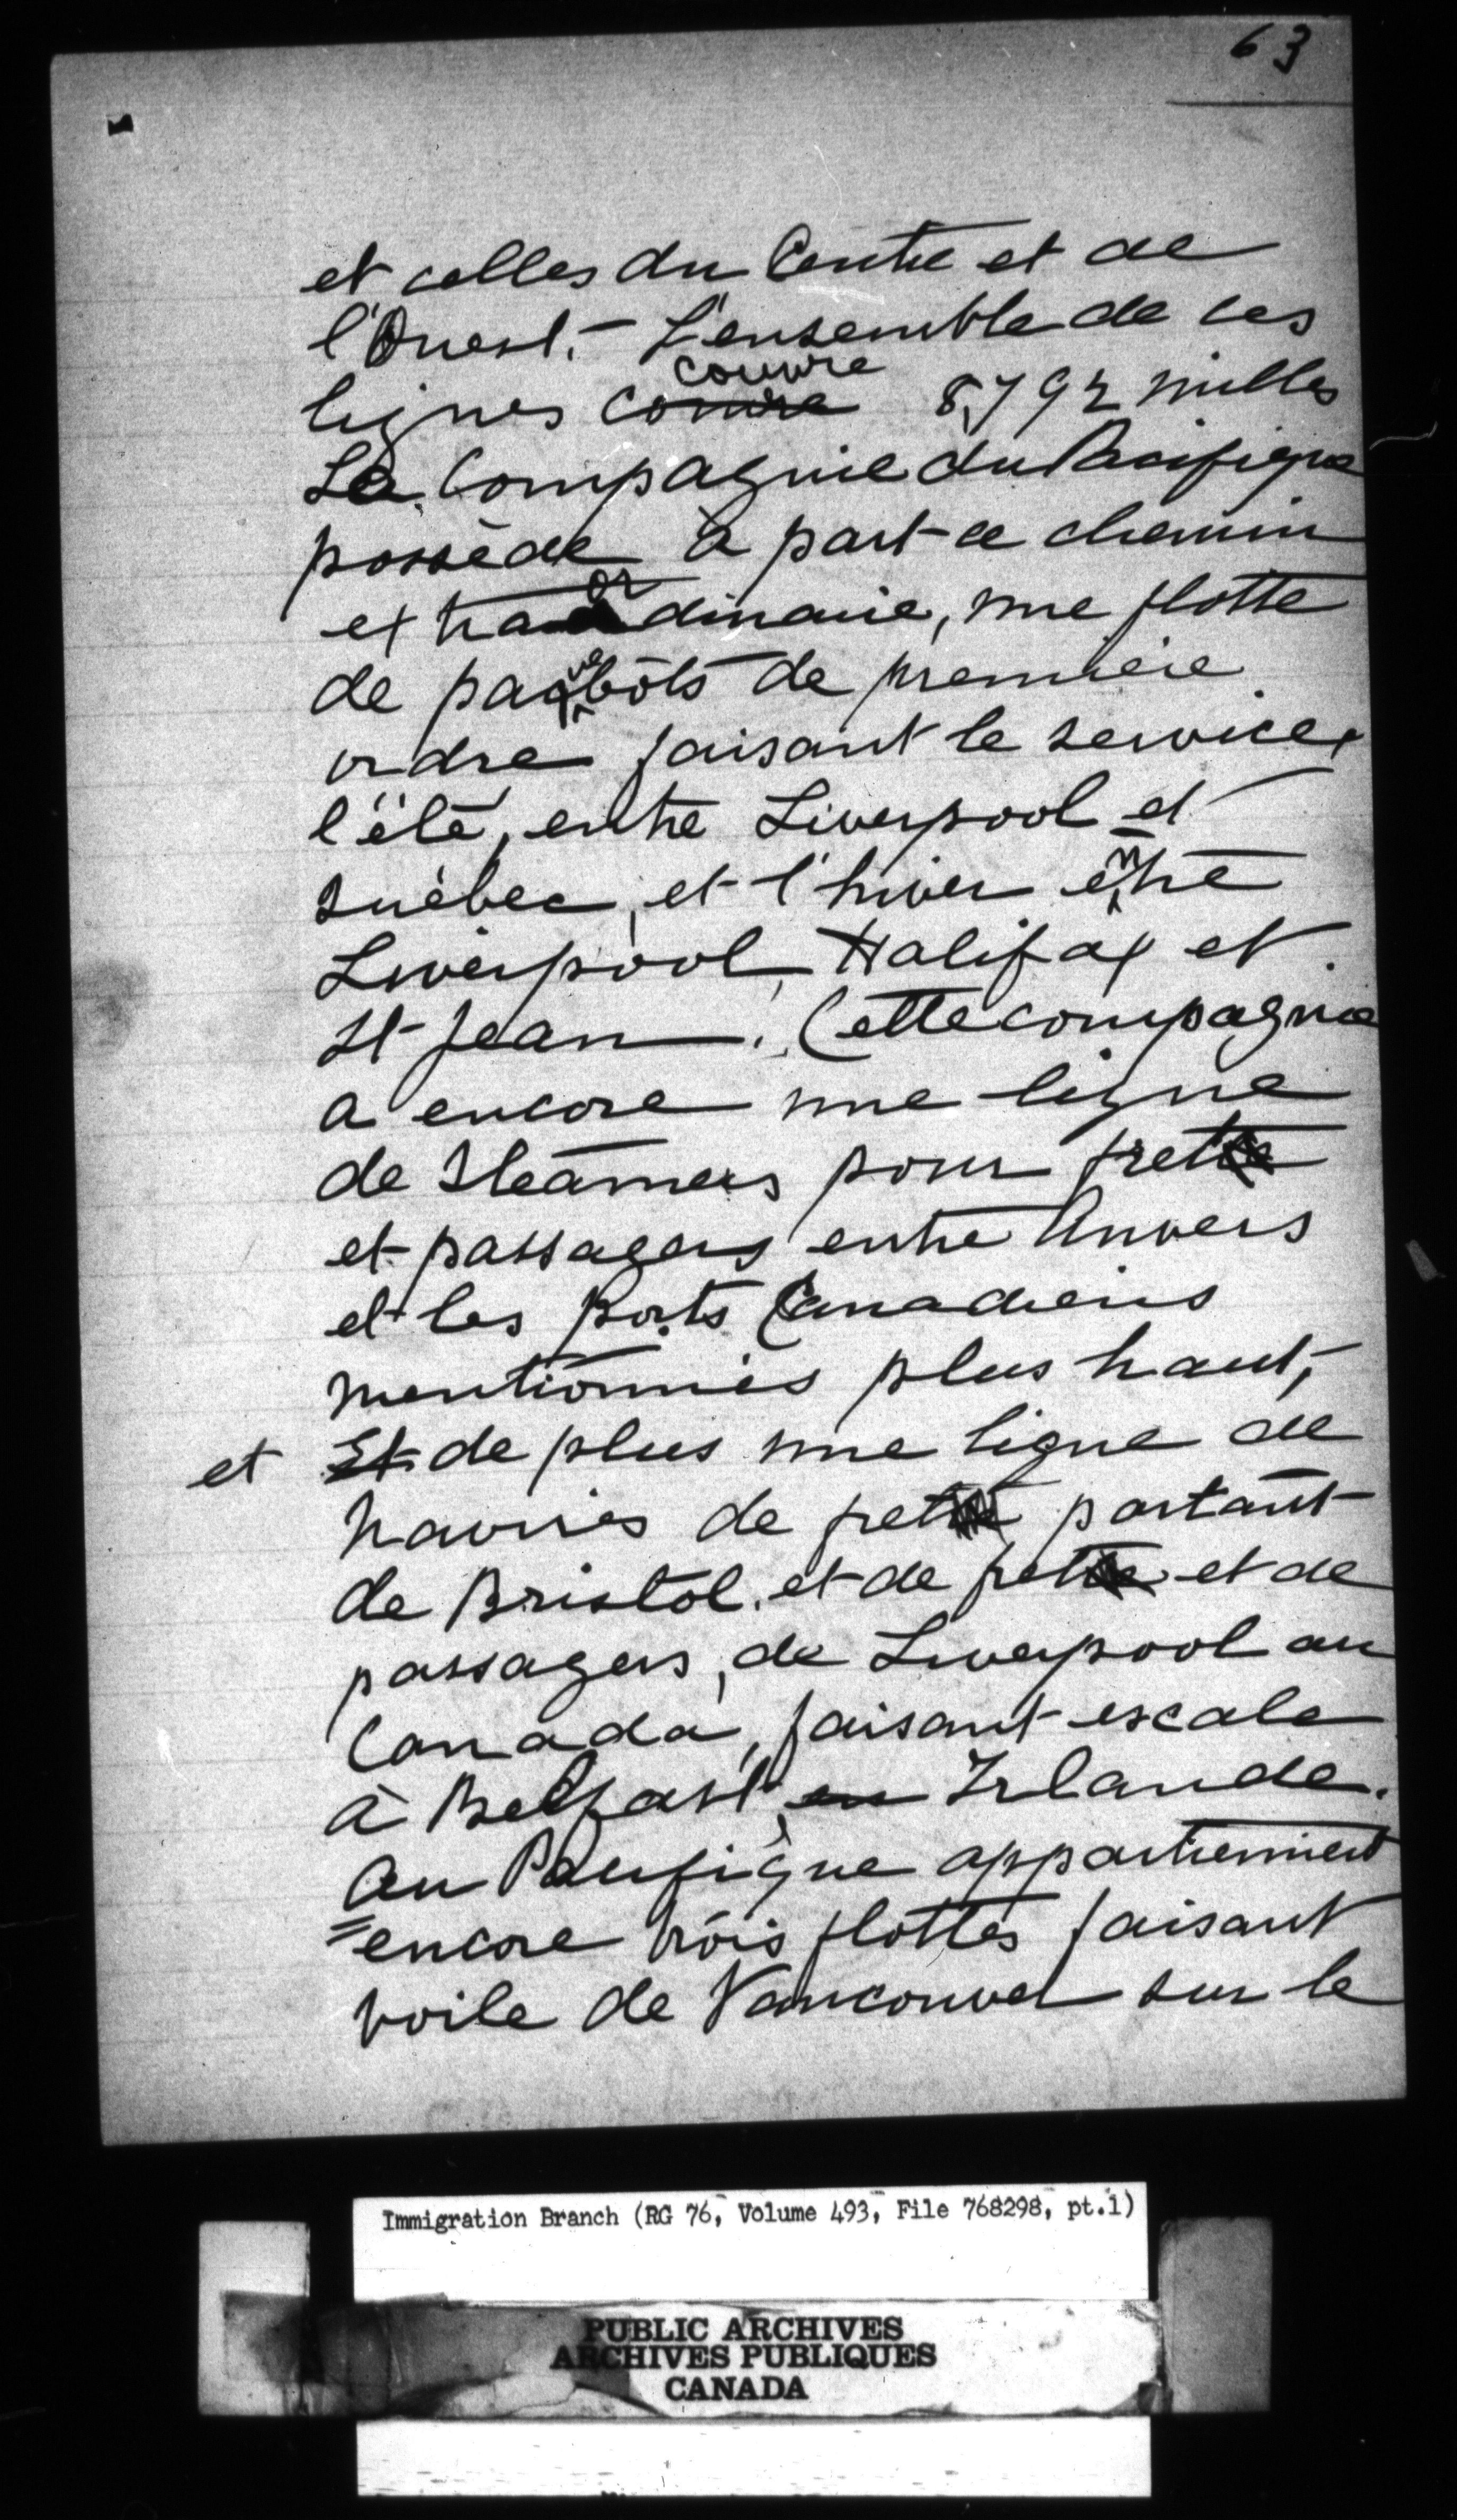 63
et celles du Centre et de
l'Ouest. - L'ensemble de ces
couvre
lignes couvre 8,792 milles
La Compagnie du Pacifique
possède à part ce chemin
extraordinaire, une flotte
de paquebôts de première
ordre faisant le service,
l'été, entre Liverpool et
Québec, et l'hiver entre
Liverpool, Halifax et
St Jean. Cette compagnie
a encore une ligne
de Steamers pour fret
et passagers entre Anvers
et les Ports Canadiens
mentionnés plus haut,
et Et de plus une ligne de
navires de fret partant
de Bristol. et de fret et de
passagers, de Liverpool au
Canada, faisant escale
à Belfast, en Irlande.
Au Pacifique appartiennent
=encore trois flottes faisant
voile de Vancouver sur le
Immigration Branch (RG 76, Volume 493, File 768298, pt.1)
PUBLIC ARCHIVES
ARCHIVES PUBLIQUES
CANADA